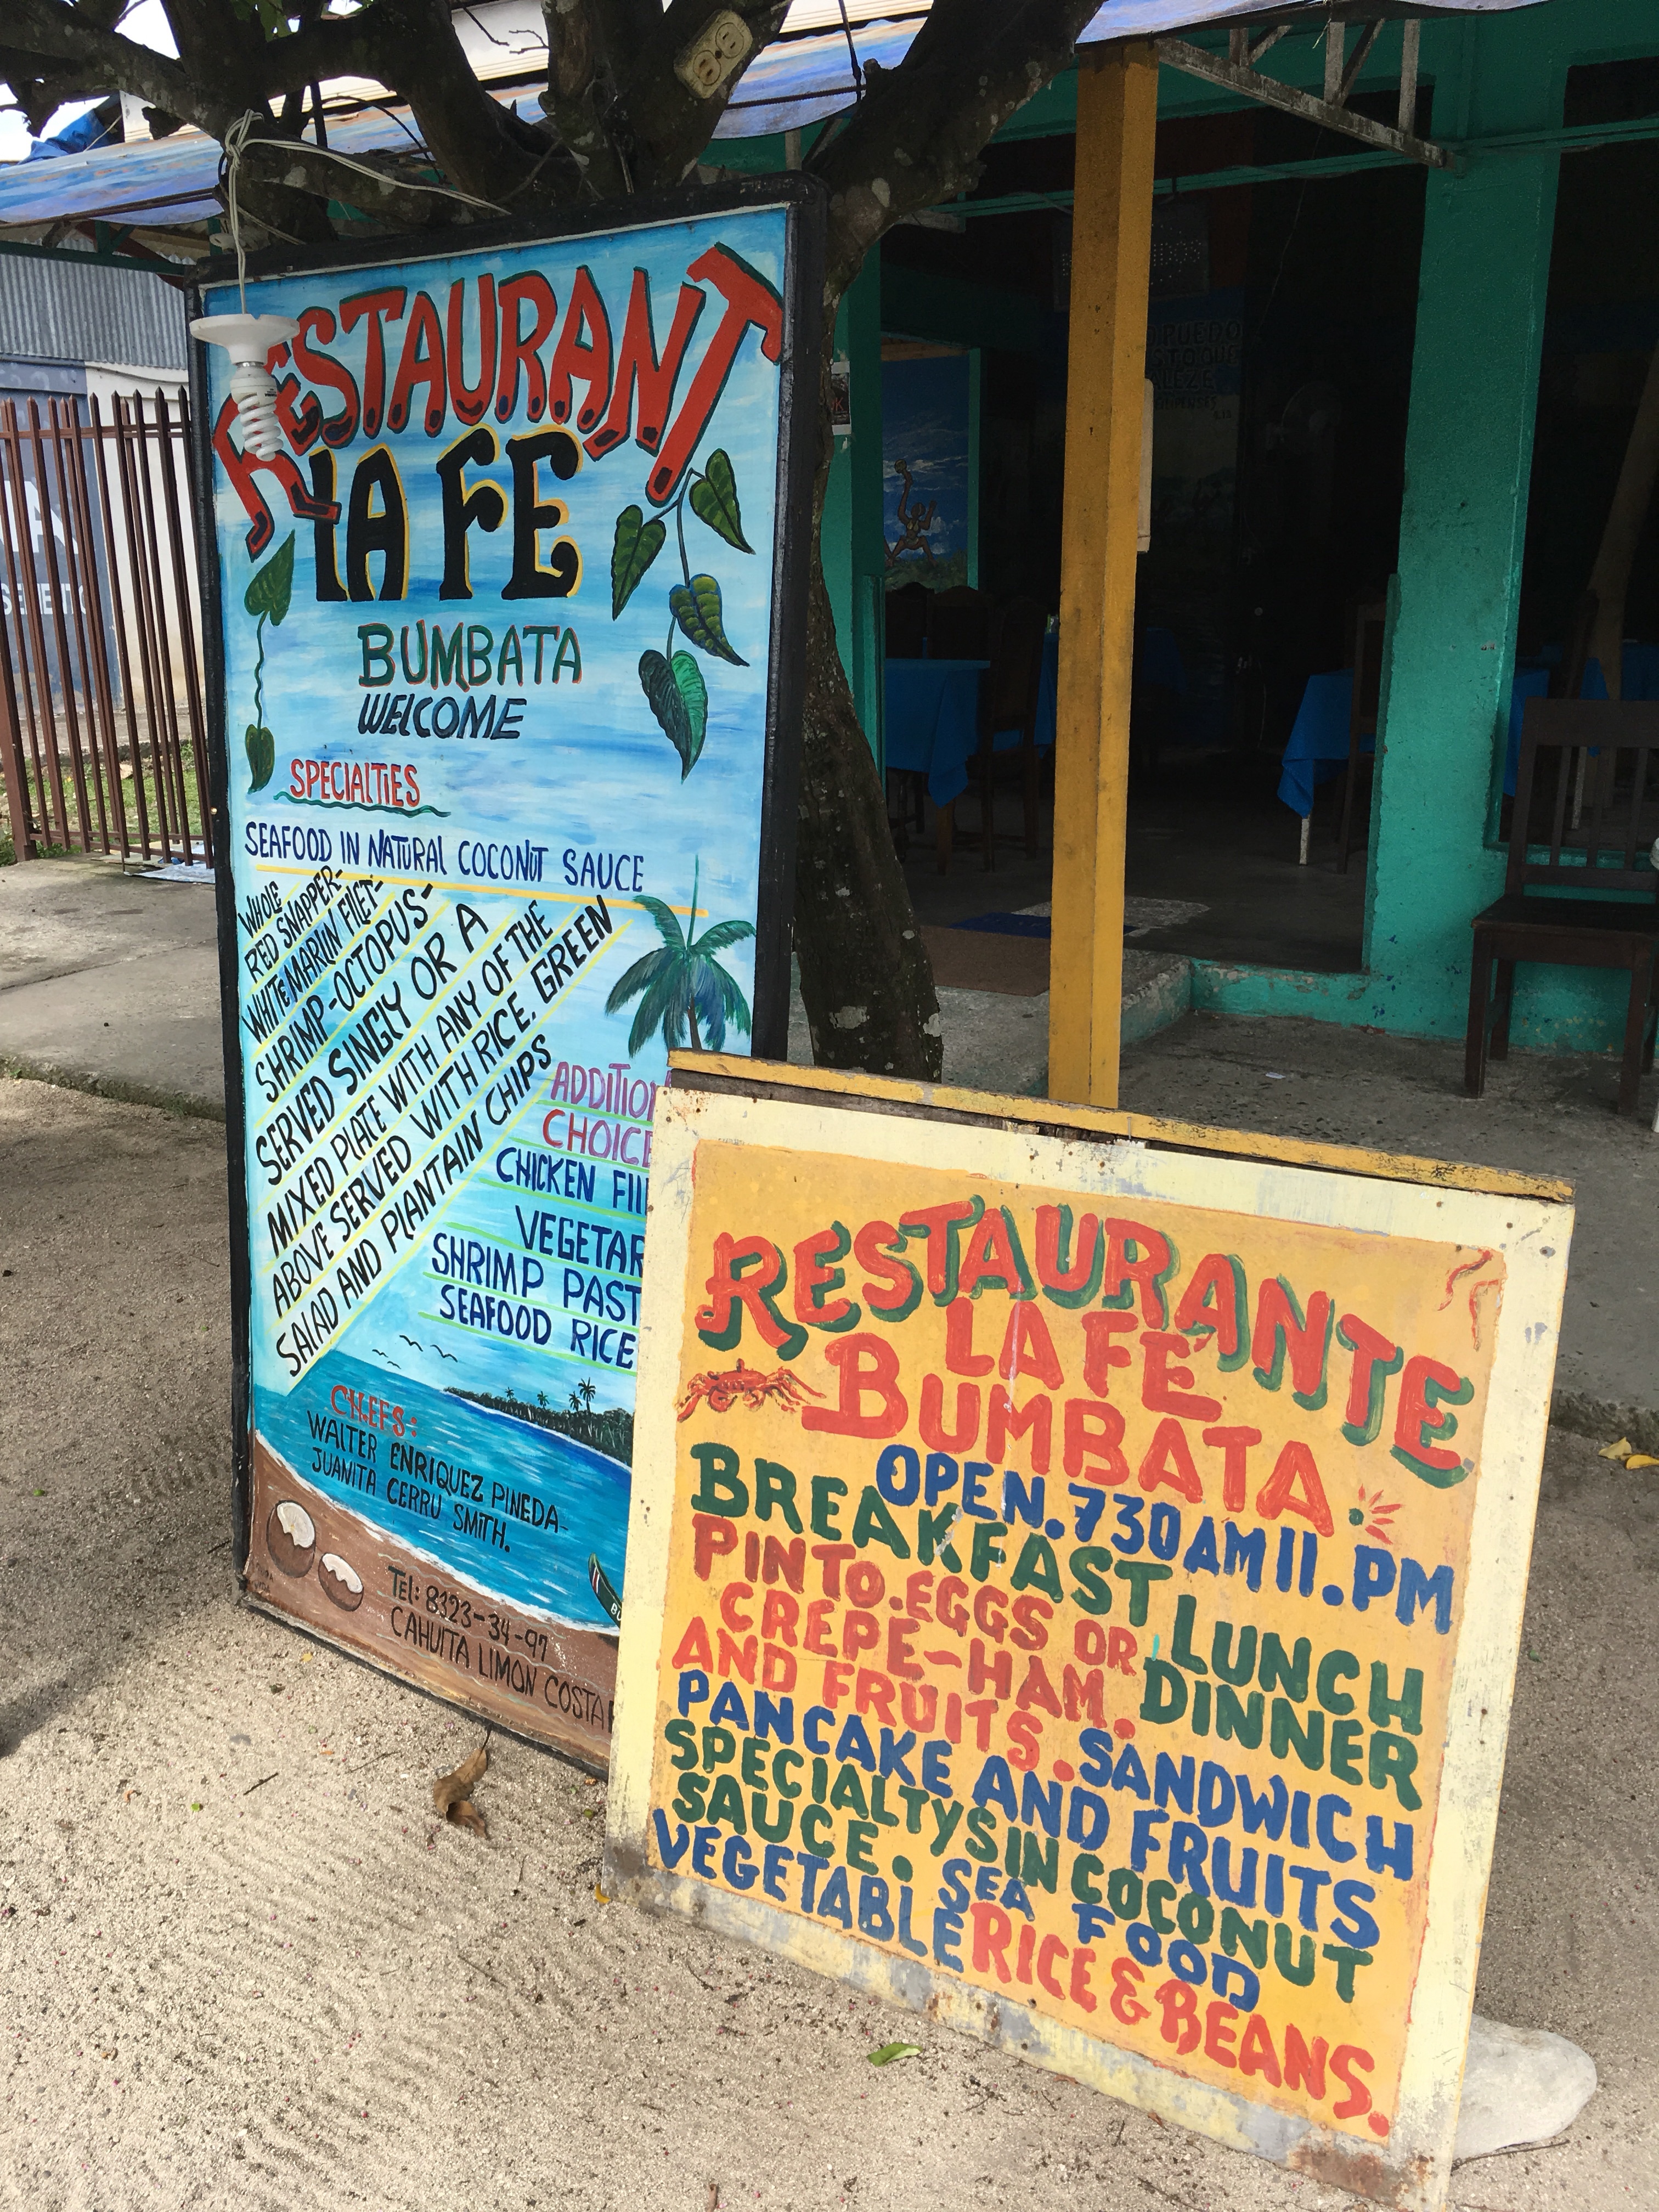 RESTAURANT
LA FE
BUMBATA
WELCOME
SPECIALTIES
SEAFOOD IN NATURAL COCONUT SAUCE
WHOLE
RED SNAPPER-
WHITE MARLIN FILET-
SHRIMP-OCTOPUS-
SERVED SINGLY OR A
MIXED PLATE WITH ANY OF THE
ABOVE SERVED WITH RICE, GREEN
SALAD AND PLANTAIN CHIPS
ADDITION
CHOICE
CHICKEN FIL
VEGETAR
SHRIMP PAST
SEAFOOD RICE
CHEFS:
WALTER ENRIQUEZ PINEDA-
JUANITA CERRU SMITH.
Tel: 8323-34-97
CAHUITA LIMON COSTA
BU
RESTAURANTE
LA FE
BUMBATA
OPEN.730AM11.PM
BREAKFAST LUNCH
PINTO.EGGS OR DINNER
CREPE-HAM.
AND FRUITS. SANDWICH
PANCAKE AND FRUITS
SPECIALTYS IN COCONUT
SAUCE. SEA FOOD
VEGETABLE RICE & BEANS.
PUEDO